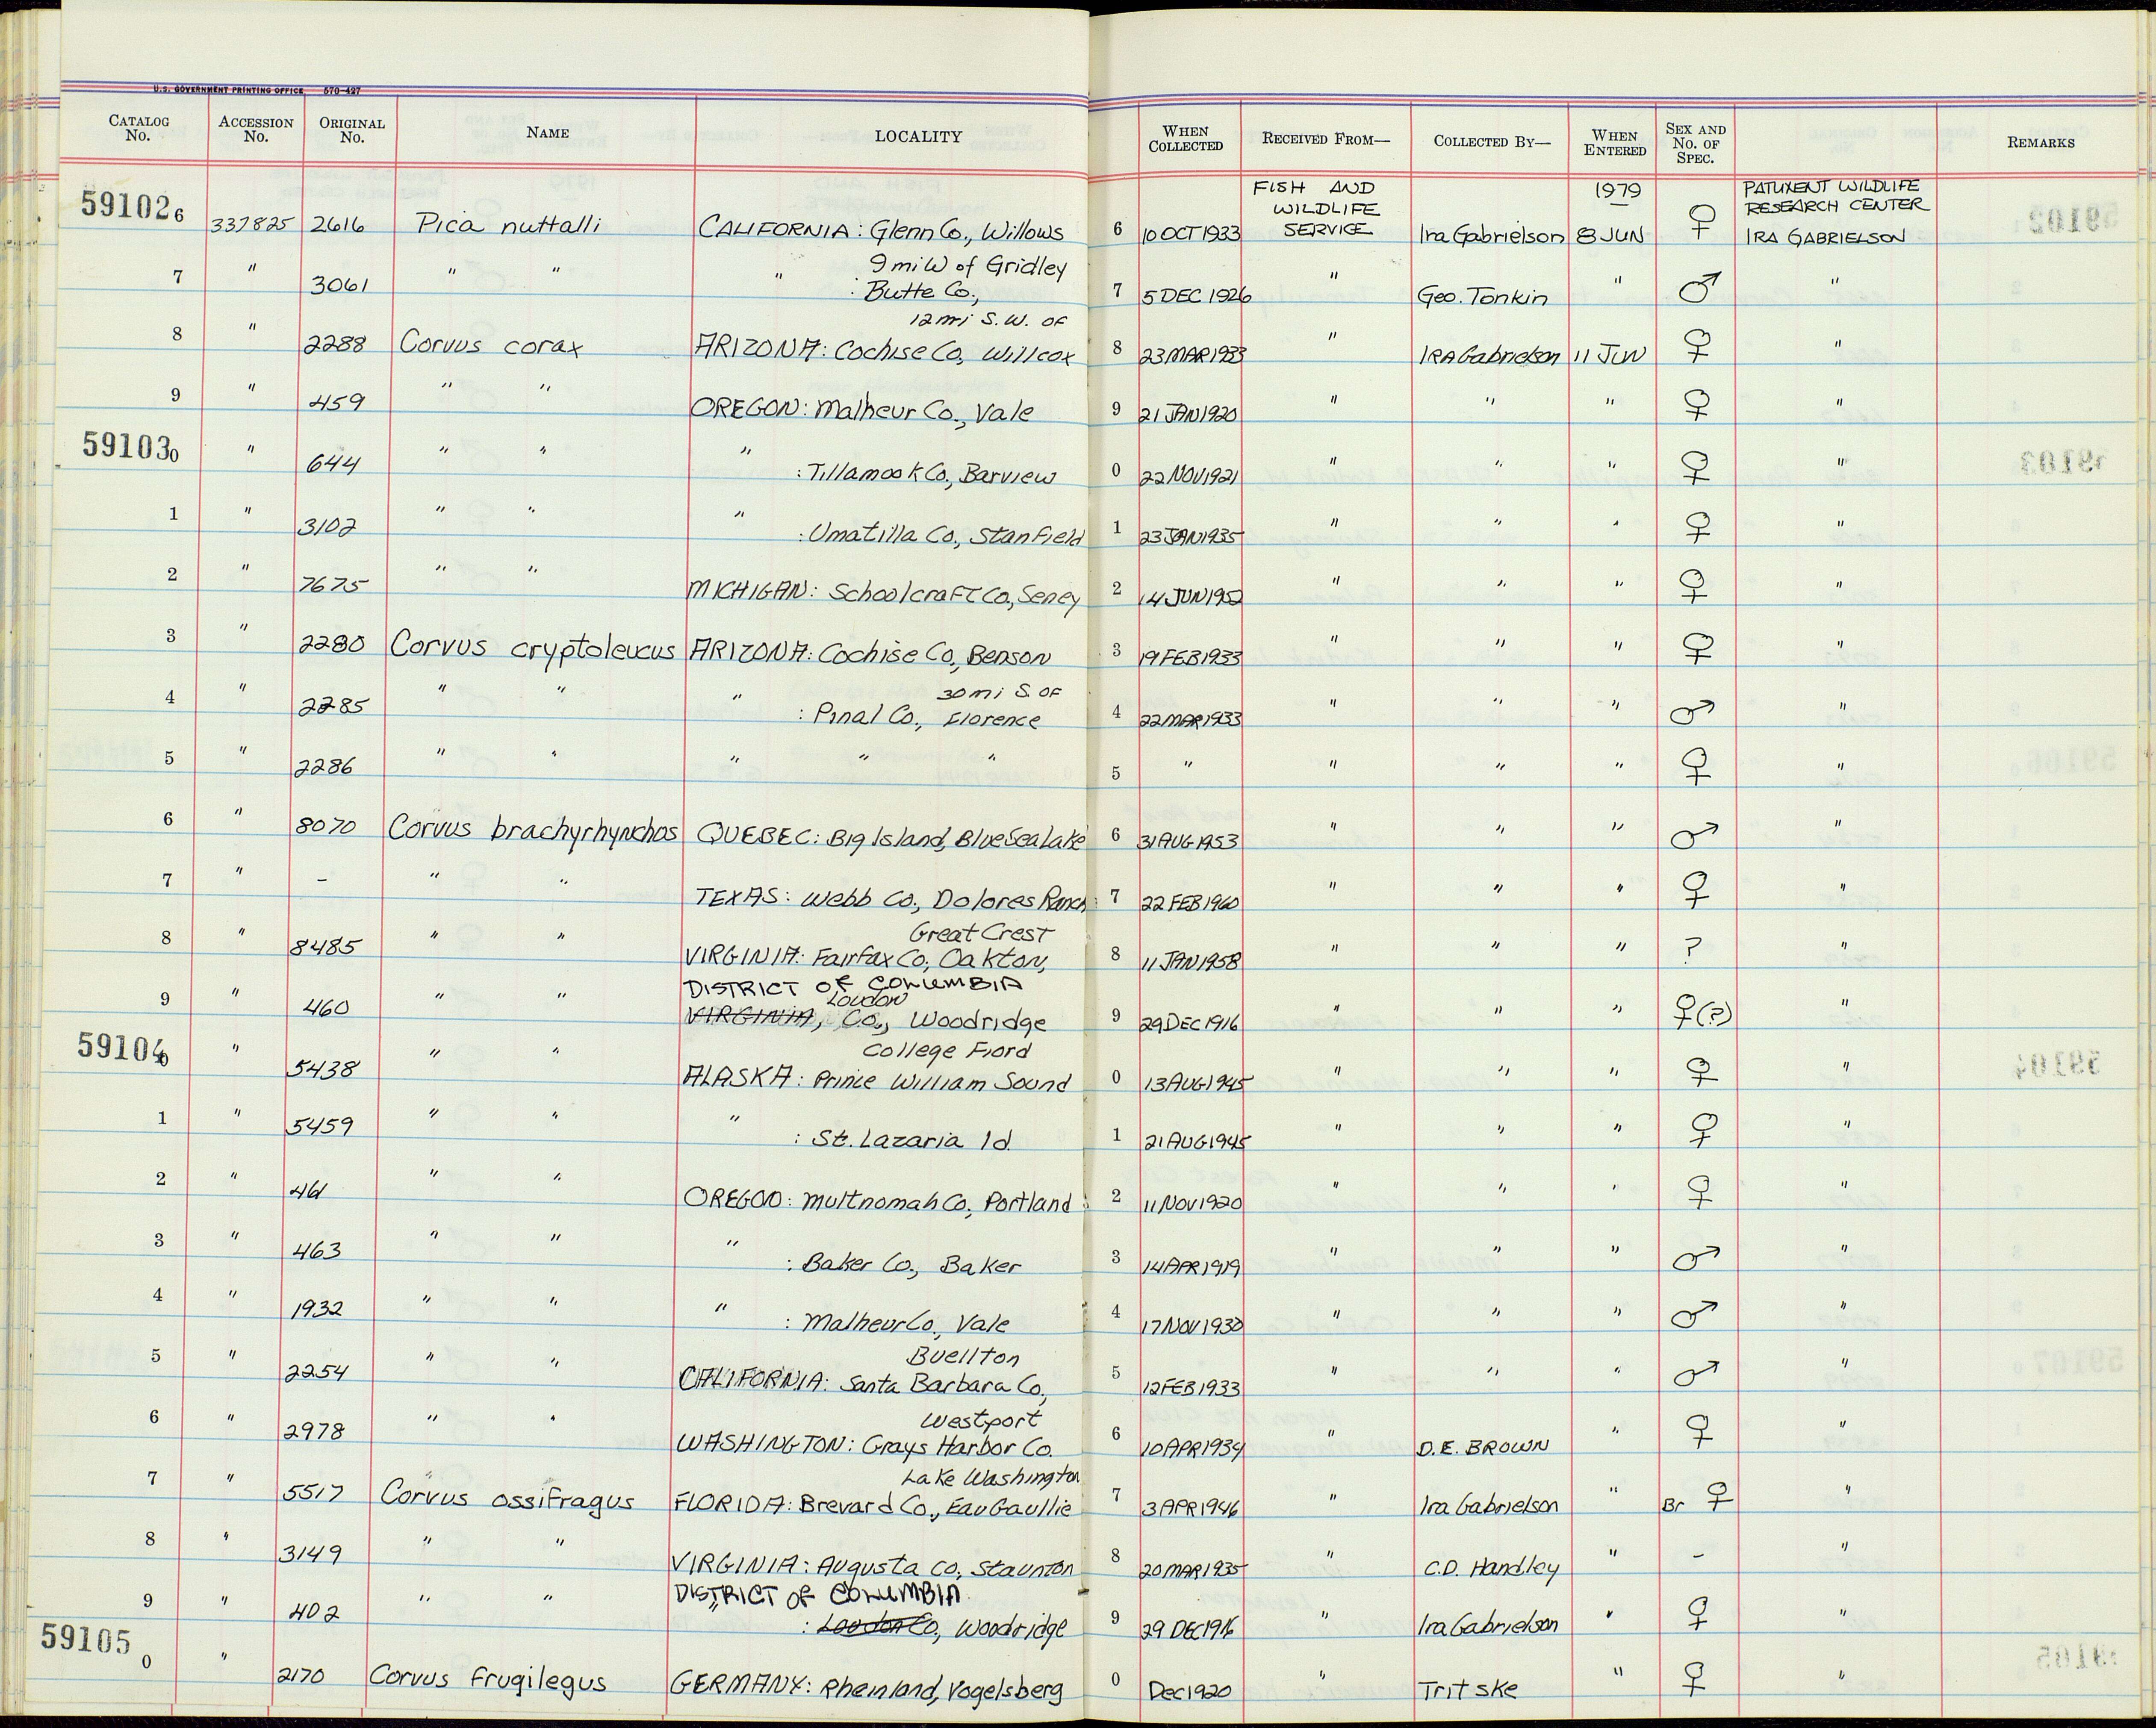 U.S. GOVERNMENT PRINTING OFFICE 570-427
CATALOG No. ACCESSION No. ORIGINAL No. NAME LOCALITY WHEN COLLECTED RECEIVED FROM— COLLECTED BY— WHEN ENTERED SEX AND No. OF SPEC. REMARKS
591026 337825 2616 Pica nuttalli CALIFORNIA: Glenn Co., Willows 6 10 OCT 1933 FISH AND WILDLIFE SERVICE Ira Gabrielson 1979 8 JUN ♀ PATUXENT WILDLIFE RESEARCH CENTER IRA GABRIELSON
7 " 3061 " " " : Butte Co., 9 mi W of Gridley 7 5 DEC 1926 " Geo. Tonkin " ♂ "
8 " 2288 Corvus corax ARIZONA: Cochise Co, 12 mi S.W. OF Willcox 8 23 MAR 1933 " IRA Gabrielson 11 JUN ♀ "
9 " 459 " " OREGON: Malheur Co., Vale 9 21 JAN 1920 " " " ♀ "
591030 " 644 " " " : Tillamook Co., Barview 0 22 NOV 1921 " " " ♀ "
1 " 3102 " " " : Umatilla Co., Stanfield 1 23 JAN 1935 " " " ♀ "
2 " 7675 " " MICHIGAN: Schoolcraft Co, Seney 2 14 JUN 1952 " " " ♀ "
3 " 2280 Corvus cryptoleucus ARIZONA: Cochise Co, Benson 3 19 FEB 1933 " " " ♀ "
4 " 2285 " " " : Pinal Co., 30 mi S. OF Florence 4 22 MAR 1933 " " " ♂ "
5 " 2286 " " " " " 5 " " " " ♀ "
6 " 8070 Corvus brachyrhynchos QUEBEC: Big Island, Blue Sea Lake 6 31 AUG 1953 " " " ♂ "
7 " - " " TEXAS: Webb Co., Dolores Ranch 7 22 FEB 1960 " " " ♀ "
8 " 8485 " " VIRGINIA: Fairfax Co, Oakton, Great Crest 8 11 JAN 1958 " " " ? "
9 " 460 " " DISTRICT OF COLUMBIA VIRGINIA, Loudon Co., Woodridge 9 29 DEC 1916 " " " ♀(?) "
591040 " 5438 " " ALASKA: Prince William Sound College Fiord 0 13 AUG 1945 " " " ♀ "
1 " 5459 " " " : St. Lazaria Id. 1 21 AUG 1945 " " " ♀ "
2 " 461 " " OREGON: Multnomah Co, Portland 2 11 NOV 1920 " " " ♀ "
3 " 463 " " " : Baker Co., Baker 3 14 APR 1919 " " " ♂ "
4 " 1932 " " " : Malheur Co., Vale 4 17 NOV 1930 " " " ♂ "
5 " 2254 " " CALIFORNIA: Santa Barbara Co., Buellton 5 12 FEB 1933 " " " ♂ "
6 " 2978 " " WASHINGTON: Grays Harbor Co. Westport 6 10 APR 1934 " D.E. BROWN " ♀ "
7 " 5517 Corvus ossifragus FLORIDA: Brevard Co., Eau Gaullie Lake Washington 7 3 APR 1946 " Ira Gabrielson " Br ♀ "
8 " 3149 " " VIRGINIA: Augusta Co, Staunton 8 20 MAR 1935 " C.D. Handley " - "
9 " 402 " " DISTRICT OF COLUMBIA " : Loudon Co, Woodridge 9 29 DEC 1916 " Ira Gabrielson " ♀ "
591050 " 2170 Corvus frugilegus GERMANY: Rheinland, Vogelsberg 0 Dec 1920 " Tritske " ♀ "